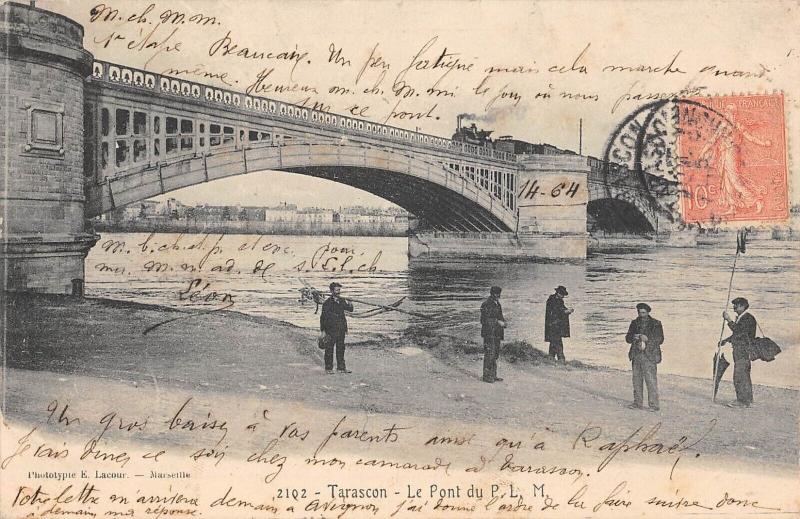 M. ch. M. m.
1e étape Beaucaire. Un peu fatigué mais cela marche quand
même. Heureux m. ch. M. m
où nous passerons
sur ce pont
14-64
RÉPUBLIQUE FRANÇAISE
10c POSTES
m. b. pour
m. ad. de
Léon
Un gros baiser à vos parents ainsi qu'à Raphaël
J'ai dîner ce soir chez mon camarade à Tarascon.
Phototypie E. Lacour. — Marseille
2102 - Tarascon - Le Pont du P. L. M.
Votre lettre m'arrivera demain à Avignon j'ai donné l'ordre de la faire suivre donc
à demain ma réponse.